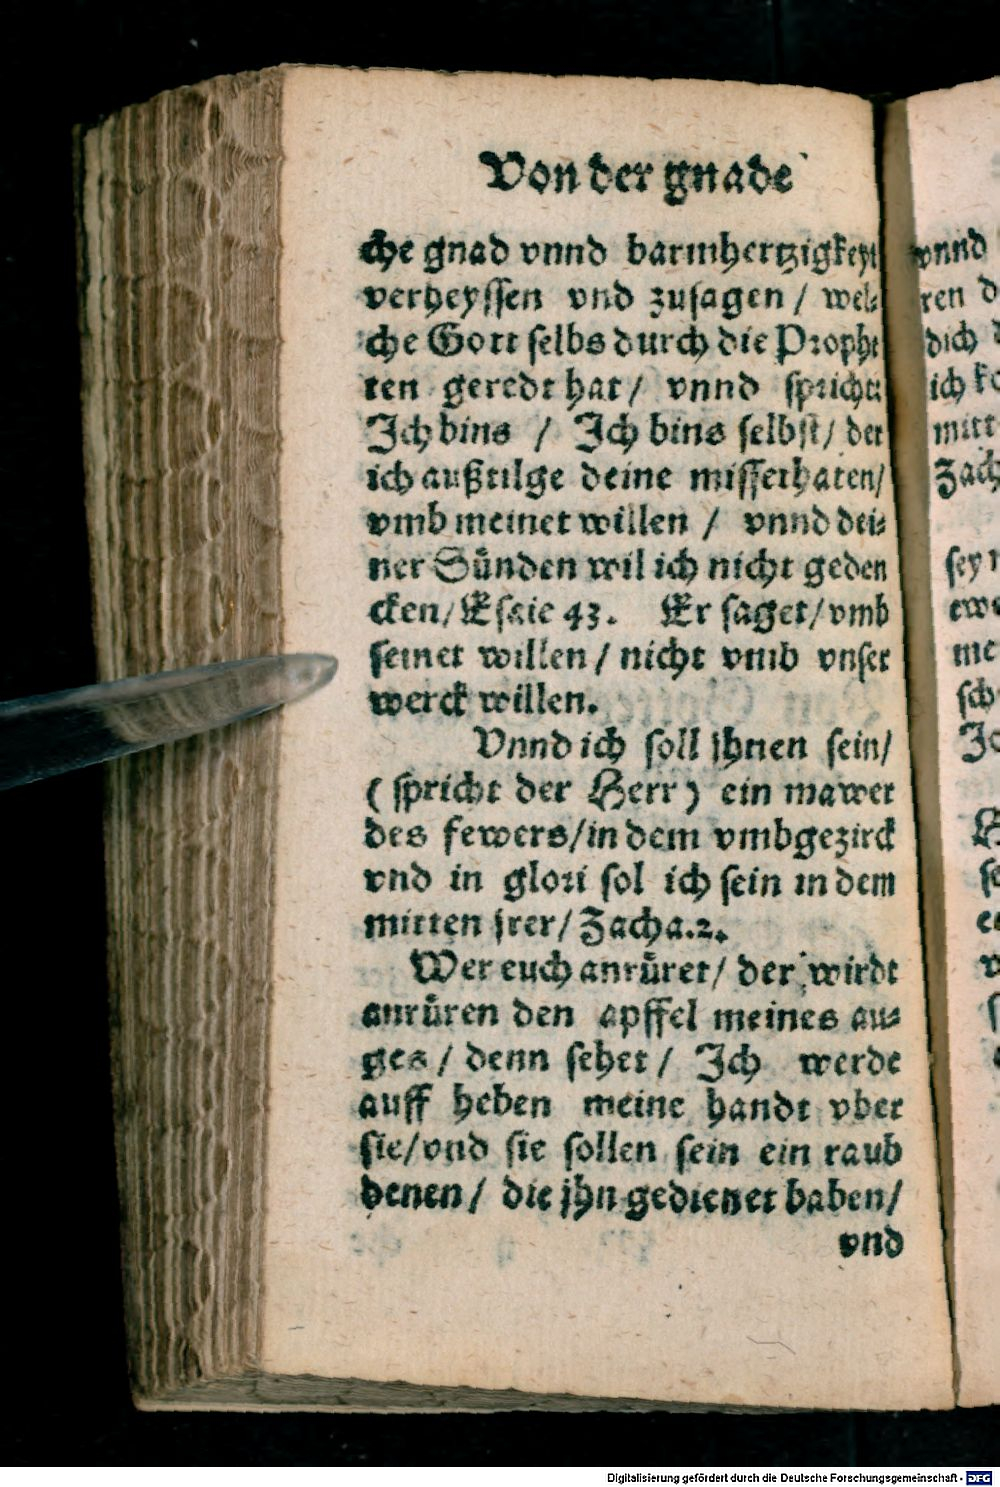 Von der gnade
che gnad vnnd barmhertzigkeyt
verheyssen vnd zusagen / wel⸗
che Gott selbs durch die Prophe
ten geredt hat / vnnd spricht:
Ich bins / Ich bins selbst / der
ich außtilge deine missethaten /
vmb meinet willen / vnnd dei⸗
ner Sünden wil ich nicht geden
cken / Esaie 43. Er saget / vmb
seinet willen / nicht vmb vnser
werck willen.
Vnnd ich soll jhnen sein /
( spricht der Herr ) ein mawer
des fewers / in dem vmbgezirck
vnd in glori sol ich sein in dem
mitten jrer / Zacha. 2.
Wer euch anrüret / der wirdt
anrüren den apffel meines au⸗
ges / denn sehet / Ich werde
auff heben meine handt vber
sie / vnd sie sollen sein ein raub
denen / die jhn gedienet haben /
vnd
vnnd
ren
dich
ich
mitt
Zach
sey
me
sch
Digitalisierung gefördert durch die Deutsche Forschungsgemeinschaft - DFG